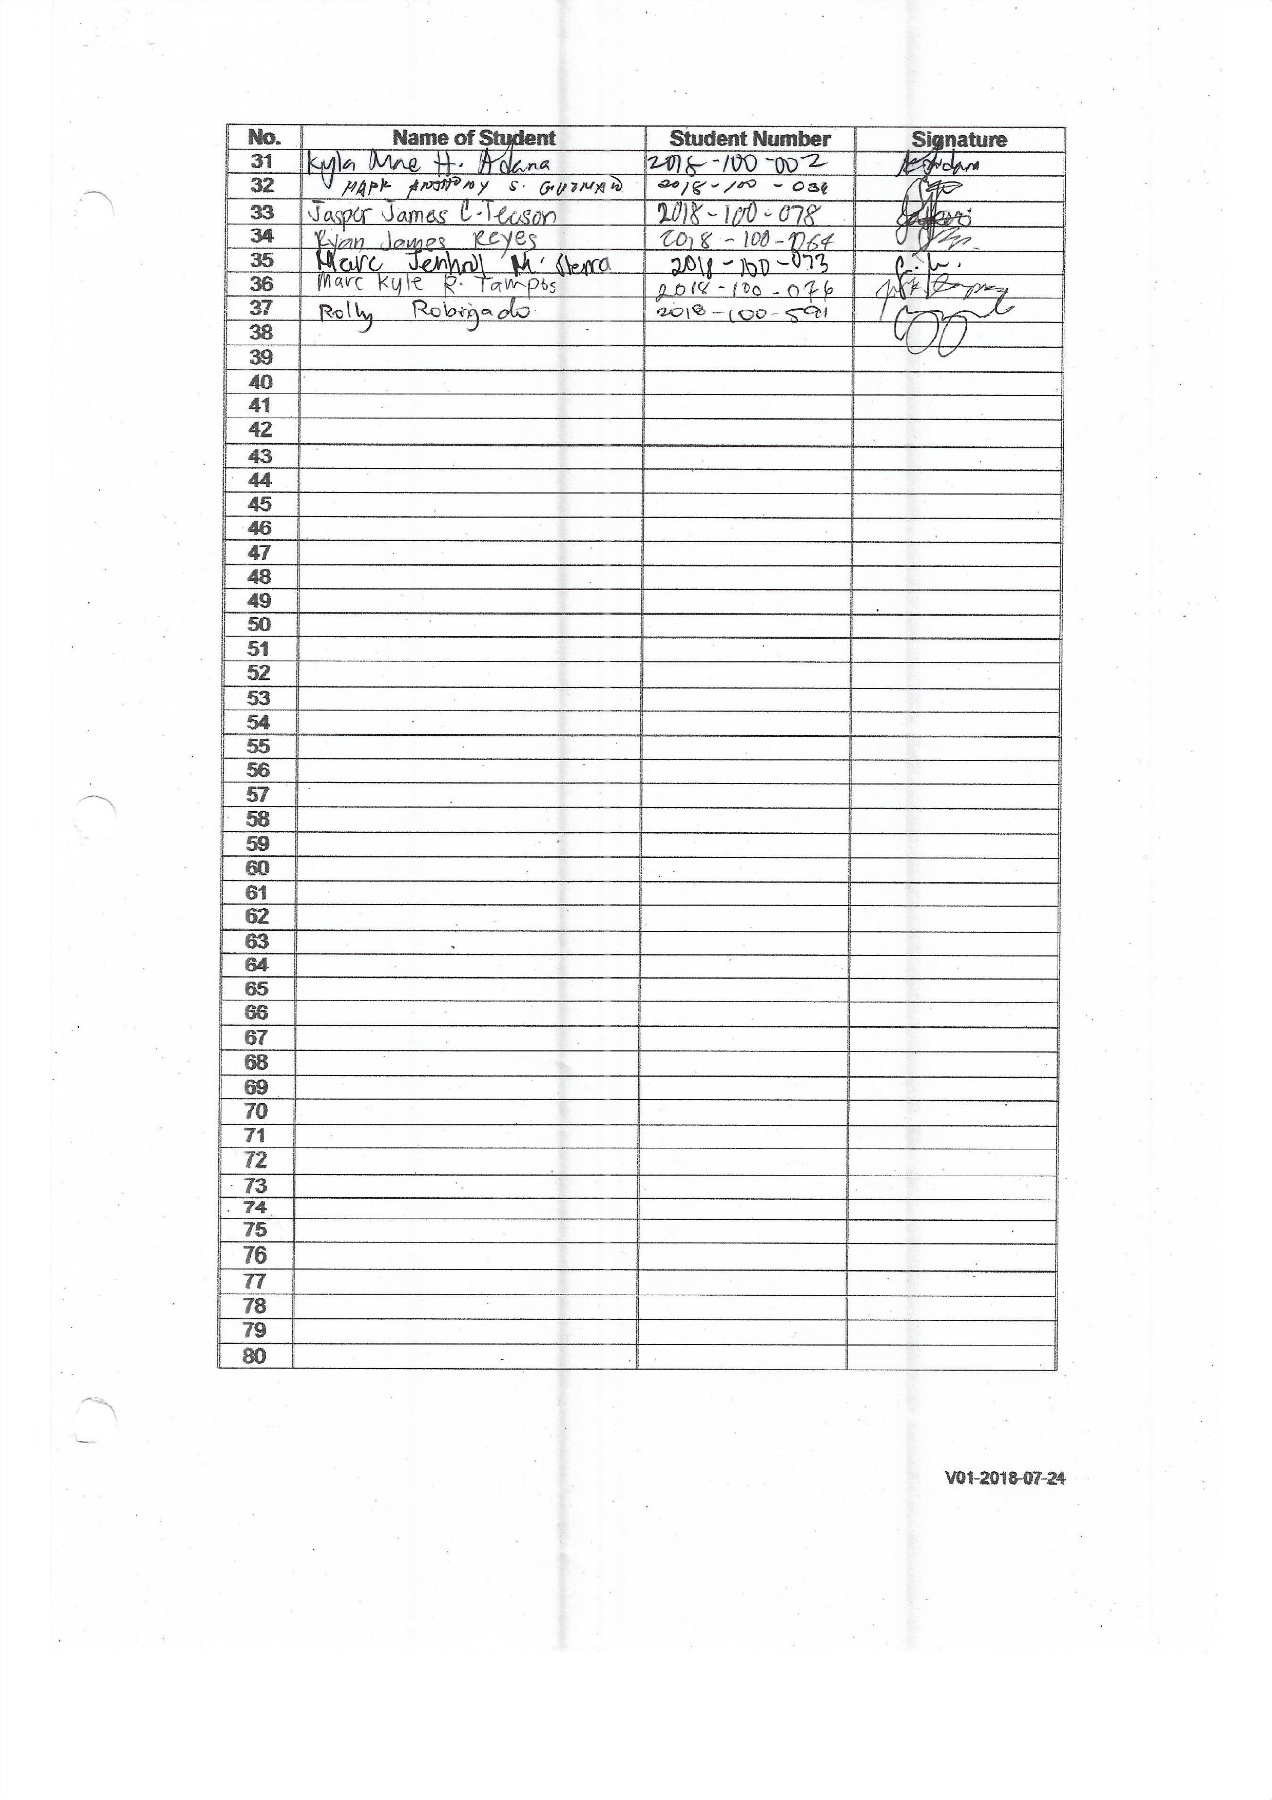 No. Name of Student Student Number Signature
31 Kyla Mae H. Adana 2018-100-002
32 MARK ANTHONY S. GUZMAN 2018-100-036
33 Jasper James C. Tecson 2018-100-078
34 Ryan James Reyes 2018-100-064
35 Marc M. Sierra 2018-100-073
36 Marc Kyle R. Tampos 2018-100-076
37 Rolly Robrigado 2018-100-591
38
39
40
41
42
43
44
45
46
47
48
49
50
51
52
53
54
55
56
57
58
59
60
61
62
63
64
65
66
67
68
69
70
71
72
73
74
75
76
77
78
79
80
V01-2018-07-24